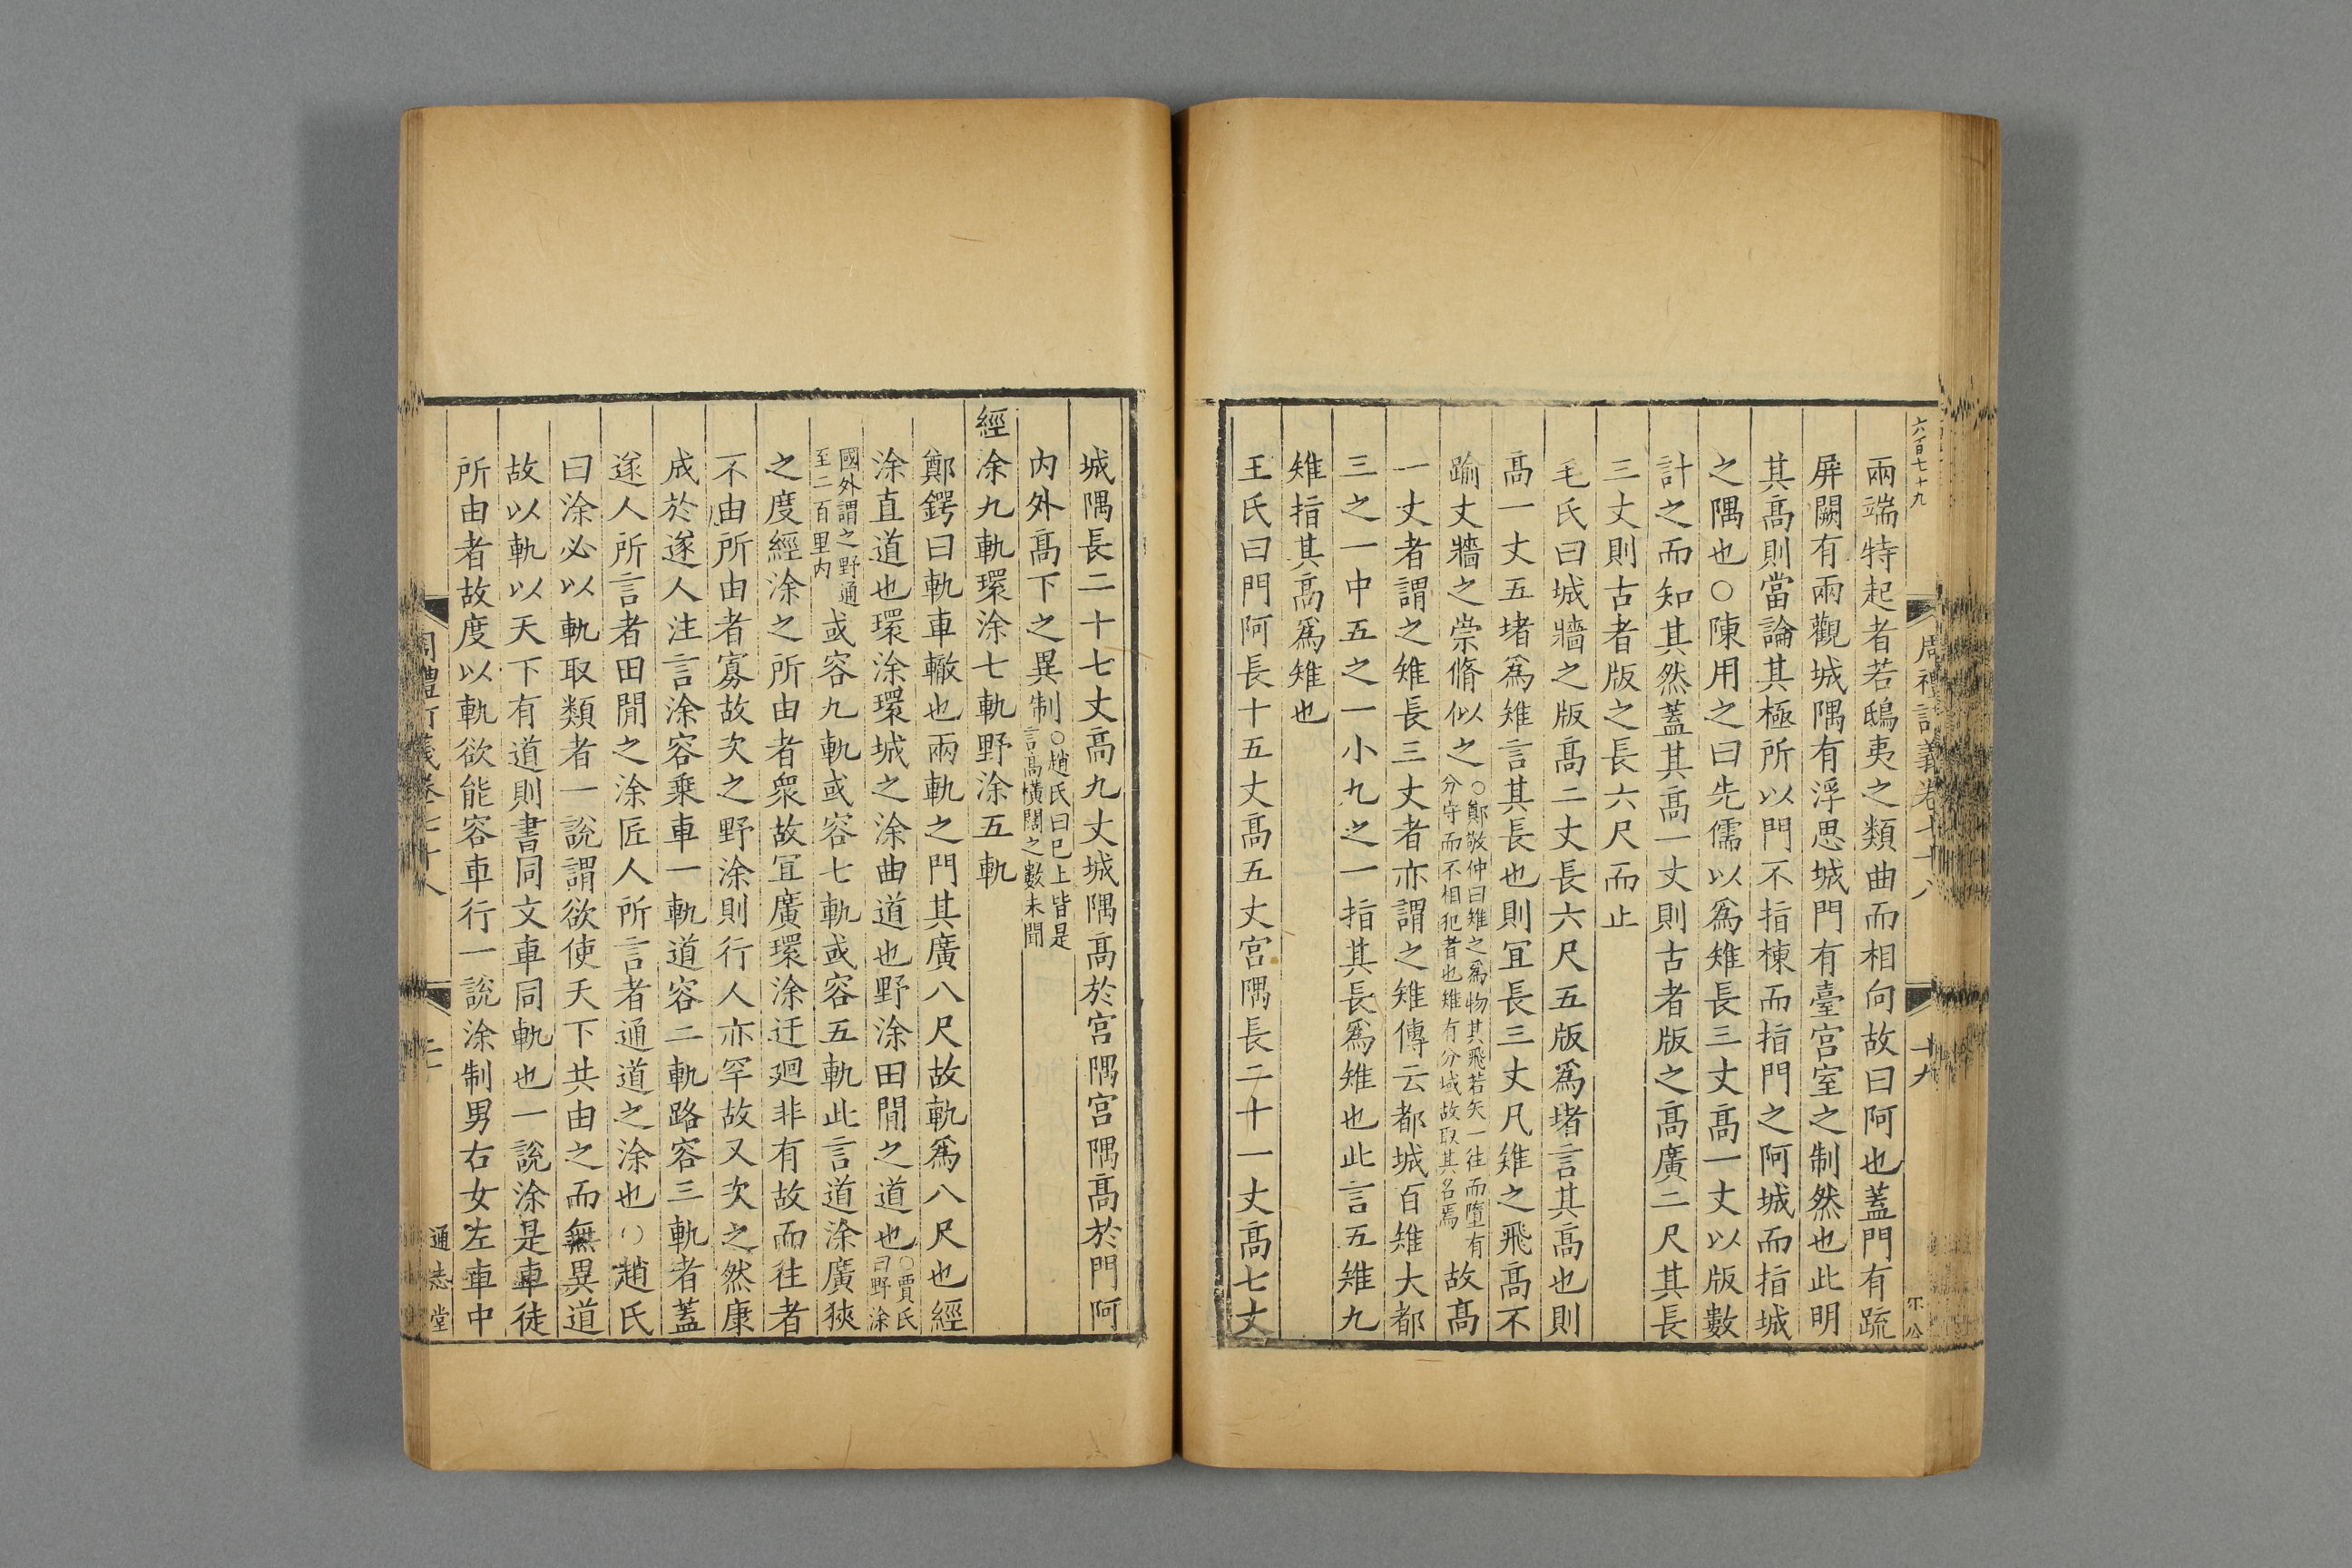 六百七十九
周禮訂義卷七十八
十九
兩端特起者若鴟夷之類曲而相向故曰阿也蓋門有疏
屏闕有兩觀城隅有浮思城門有臺宮室之制然也此明
其高則當論其極所以門不指棟而指門之阿城而指城
之隅也○陳用之曰先儒以爲雉長三丈高一丈以版數
計之而知其然蓋其高一丈則古者版之高廣二尺其長
三丈則古者版之長六尺而止
毛氏曰城牆之版高二丈長六尺五版爲堵言其高也則
高一丈五堵爲雉言其長也則冝長三丈凡雉之飛高不
踰丈牆之崇脩似之
○鄭敬仲曰雉之爲物其飛若矢一往而墮有
分守而不相犯者也雉有分域故取其名焉
故高
一丈者謂之雉長三丈者亦謂之雉傳云都城百雉大都
三之一中五之一小九之一指其長爲雉也此言五雉九
雉指其高爲雉也
王氏曰門阿長十五丈高五丈宮隅長二十一丈高七丈
城隅長二十七丈高九丈城隅高於宮隅宮隅高於門阿
内外高下之異制
○趙氏曰已上皆是
言高橫闊之數未聞
經涂九軌環涂七軌野涂五軌
鄭鍔曰軌車轍也兩軌之門其廣八尺故軌爲八尺也經
涂直道也環涂環城之涂曲道也野涂田閒之道也
○賈氏
曰野涂
國外謂之野通
至二百里内
或容九軌或容七軌或容五軌此言道涂廣狹
之度經涂之所由者衆故冝廣環涂迂廻非有故而往者
不由所由者寡故次之野涂則行人亦罕故又次之然康
成於遂人注言涂容乗車一軌道容二軌路容三軌者蓋
遂人所言者田閒之涂匠人所言者通道之涂也○趙氏
曰涂必以軌取類者一說謂欲使天下共由之而無異道
故以軌以天下有道則書同文車同軌也一說涂是車徒
所由者故度以軌欲能容車行一說涂制男右女左車中
通志堂